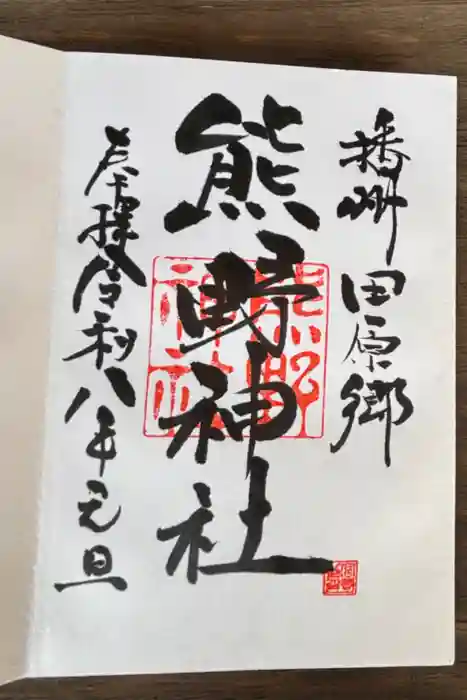 播州田原郷
熊野神社
奉拝令和八年元旦
熊野
神社